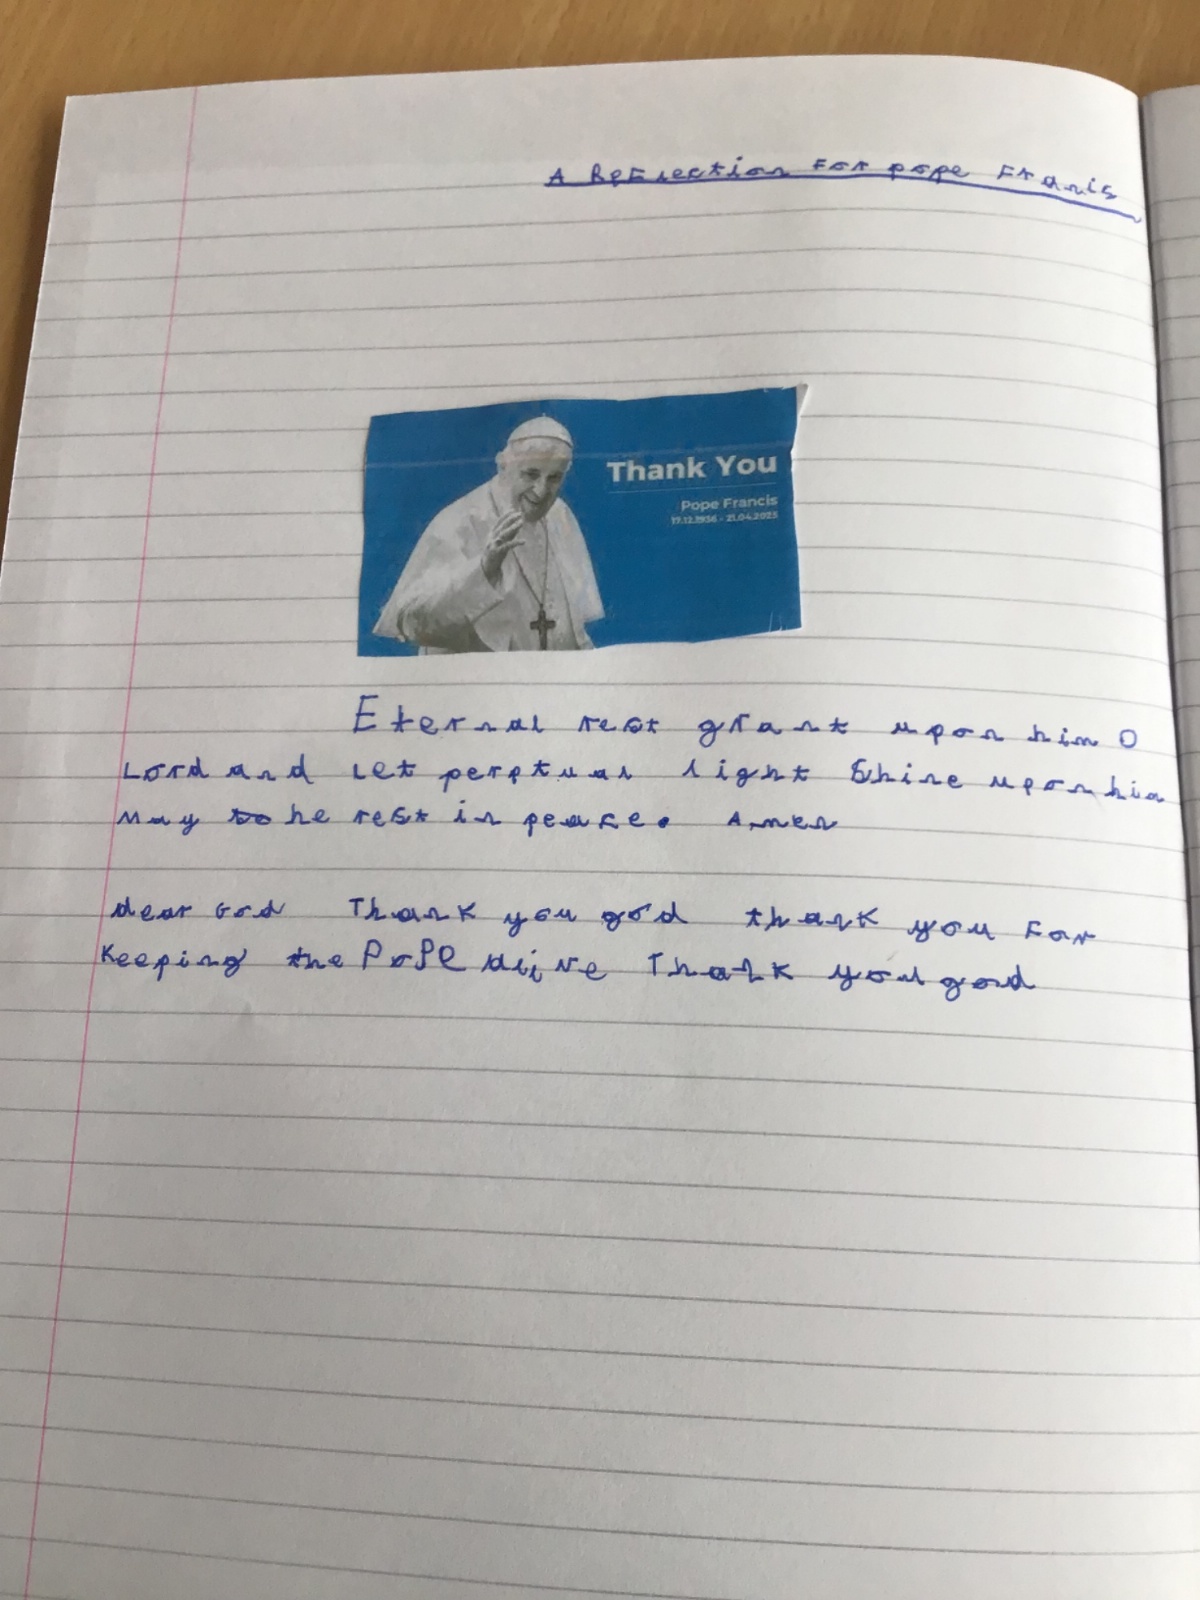 A Reflection For pope Franis
Thank You
Pope Francis
17.12.1936 - 21.04.2025
Eternal rest grant upon him O
Lord and let perptual light Shine upon him
May he rest in peace. Amen
dear God Thank you god thank you for
Keeping the PoPe alive Thank you god